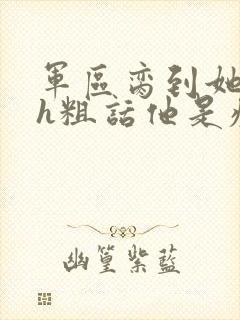 軍區脔到她
h粗話他是
幽篁紫藍